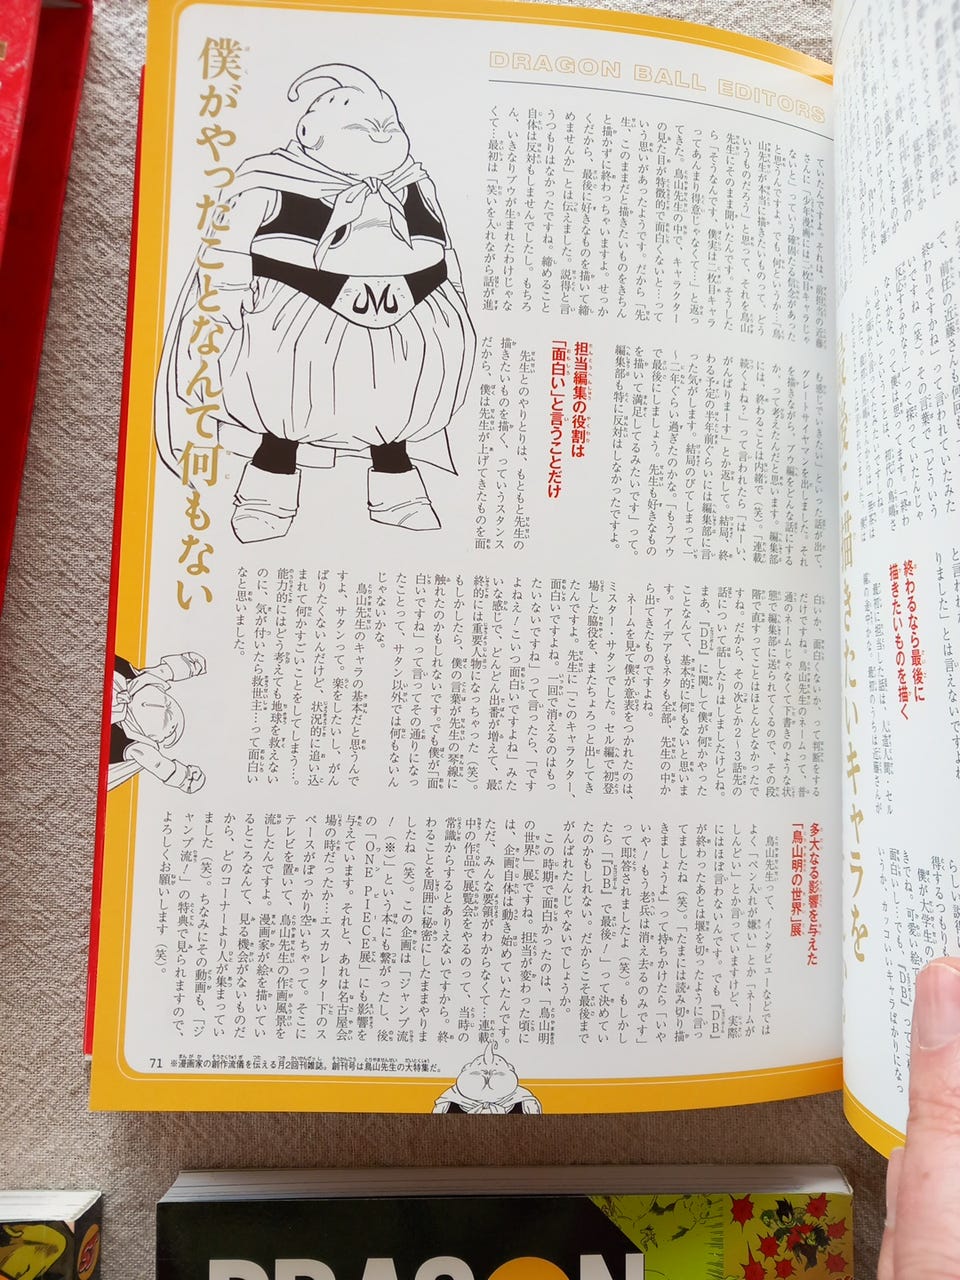 終わるなら最後に
描きたいものを描く
DRAGON BALL EDITORS
僕がやったことなんて何もない
ていたんですよ。それは、前担当の近藤
さんに「少年漫画には二枚目キャラじゃ
ないと」っていう確固たる信念があった
と思うんですよ。でも、何というか…「鳥
山先生が本当に描きたいものって、どう
いうものだろう」と思って、それを鳥山
先生にそのまま聞いたんです。そうした
ら「そうなんです、僕実は二枚目キャラ
ってあんまり得意じゃなくて」と返っ
てきた。鳥山先生の中で、キャラクター
の見た目が特徴的で面白くないと…って
いう思いがあったようです。だから「先
生、このままだと描きたいものをきちん
と描かずに終わっちゃいますよ。せっか
くだから、最後に好きなものを描いて締
めませんか」とは伝えました。説得と言
うつもりはなかったですね。締めること
自体は反対もしませんでしたし。もちろ
ん、いきなりブウが生まれたわけじゃな
くて…最初は「笑いを入れながら話が進
む感じでいきたい」といった話が出て、
グレートサイヤマンを出しました。それ
を描きながら、ブウ編をどんな話にする
か、って考えたんだと思います。編集部
には、終わることは内緒で（笑）。「連載
続くよね？」って言われたら「はーい、
がんばりまーす」とか返して。結局、終
わる予定の半年前ぐらいには編集部に言
った気がします。結局のびてしまって一
～二年ぐらい過ぎたのかな。「もうブウ
で最後にしましょう。先生も好きなもの
を描いて満足してるみたいです」って。
編集部も特に反対はしなかったですよ。
担当編集の役割は
「面白い」と言うことだけ
先生とのやりとりは、もともと先生の
描きたいものを描く、っていうスタンス
だから、僕は先生が上げてきたものを面
白いか、面白くないか、って判断をする
だけですね。鳥山先生のネームって、普
通のネームじゃなくて下書きのような状
態で編集部に送られてくるので、その段
階で直すってことはほとんどなかったで
すね。だから、その次とか２～３話先の
話について話したりはしましたけどね。
まあ、『ＤＢ』に関して僕が何かやった
ことなんて、基本的に何もないと思いま
す。アイデアもネタも全部、先生の中か
ら出てきたものですよね。
ネームを見て僕が意表をつかれたのは、
ミスター・サタンでした。セル編で初登
場した脇役を、またちょろっと出してき
たんですよ。先生に「このキャラクター、
面白いですよね。一回で消えるのはもっ
たいないですね」って言ったら、「です
よねえ！こいつ面白いですよね」みた
いな感じで、どんどん出番が増えて、最
終的には重要人物になっちゃった（笑）。
もしかしたら、僕の言葉が先生の琴線に
触れたのかもしれないです。でも僕が「面
白いですね」って言ってその通りになっ
たことって、サタン以外では何もないん
じゃないかな。
鳥山先生のキャラの基本だと思うんで
すよ、サタンって。楽をしたいし、がん
ばりたくないんだけど、状況的に追い込
まれて何かすごいことをしてしまう…。
能力的にはどう考えても地球を救えない
のに、気が付いたら救世主…って面白い
なと思いました。
多大なる影響を与えた
「鳥山明の世界」展
鳥山先生って、インタビューなどでは
よく「ペン入れが嫌い」とか「ネームが
しんどい」とか言っていますけど、実際
にはほぼ言わないんです。でも『ＤＢ』
が終わったあとは堰を切ったように言っ
てましたね（笑）。「たまには読み切り描
きましょうよ」って持ちかけたら「いや
いや！もう老兵は消え去るのみです」
って即答されましたよ（笑）。もしかし
たら「『ＤＢ』で最後！」って決めてい
たのかもしれない。だからこそ最後まで
がんばれたんじゃないでしょうか。
この時期で面白かったのは、「鳥山明
の世界」展ですね。担当が変わった頃に
は、企画自体は動き始めていたんです。
ただ、みんな要領がわからなくて…連載
中の作品で展覧会をやるのって、当時の
常識からするとありえないですから。終
わることを周囲に秘密にしたままやりま
したね（笑）。この企画は「ジャンプ流
！（※）」という本にも繋がったし、後
の「ＯＮＥ ＰＩＥＣＥ展」にも影響を
与えています。それと、あれは名古屋会
場の時だったか…エスカレーター下のス
ペースがぽっかり空いちゃって。そこに
テレビを置いて、鳥山先生の作画風景を
流したんですよ。漫画家が絵を描いてい
るところなんて、見る機会がないものだ
から、どのコーナーより人が集まってい
ました（笑）。ちなみにその動画も、「ジ
ャンプ流！」の特典で見られますので、
よろしくお願いします（笑）。
71 ※漫画家の創作流儀を伝える月2回刊雑誌。創刊号は鳥山先生の大特集だ。
DRAGON